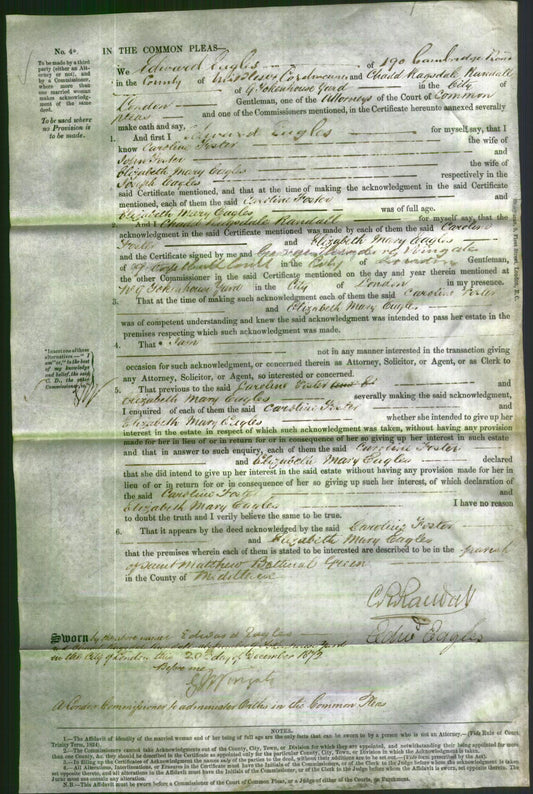 No. 4a.
IN THE COMMON PLEAS
To be made by a third
party (either an Attorney
or not), and
by a Commissioner,
where more
than one married
woman makes
acknowledgment
of the same
deed.
To be used where
no Provision is
to be made.
We Edward Eagles of 190 Cambridge Road
in the County of Middlesex and Chadd Ragsdale Randall
of 9 Tokenhouse Yard in the City of
London Gentleman, one of the Attorneys of the Court of Common
Pleas and one of the Commissioners mentioned, in the Certificate hereunto annexed severally
make oath and say,
1. And first I Edward Eagles for myself say, that I
know Caroline Foster the wife of
John Foster and
Elizabeth Mary Eagles the wife of
Joseph Eagles respectively in the
said Certificate mentioned, and that at the time of making the acknowledgment in the said Certificate
mentioned, each of them the said Caroline Foster and
Elizabeth Mary Eagles was of full age.
2. And I Chadd Ragsdale Randall for myself say, that the
acknowledgment in the said Certificate mentioned was made by each of them the said Caroline
Foster and Elizabeth Mary Eagles
and the Certificate signed by me and
of in the City of London Gentleman,
the other Commissioner in the said Certificate mentioned on the day and year therein mentioned at
No 9 Tokenhouse Yard in the City of London in my presence.
3. That at the time of making such acknowledgment each of them the said Caroline Foster
and Elizabeth Mary Eagles
was of competent understanding and knew the said acknowledgment was intended to pass her estate in the
premises respecting which such acknowledgment was made.
4. That * I am
not in any manner interested in the transaction giving
occasion for such acknowledgment, or concerned therein as Attorney, Solicitor, or Agent, or as Clerk to
any Attorney, Solicitor, or Agent, so interested or concerned.
* Insert one of these
alternatives.—"I
am" or, "to the best
of my knowledge
and belief, the said
C. D., the other
Commissioner is"
5. That previous to the said Caroline Foster and
Elizabeth Mary Eagles severally making the said acknowledgment,
I enquired of each of them the said Caroline Foster and
Elizabeth Mary Eagles whether she intended to give up her
interest in the estate in respect of which such acknowledgment was taken, without having any provision
made for her in lieu of or in return for or in consequence of her so giving up her interest in such estate
and that in answer to such enquiry, each of them the said Caroline Foster
and Elizabeth Mary Eagles declared
that she did intend to give up her interest in the said estate without having any provision made for her in
lieu of or in return for or in consequence of her so giving up such her interest, of which declaration of
the said Caroline Foster and
Elizabeth Mary Eagles I have no reason
to doubt the truth and I verily believe the same to be true.
6. That it appears by the deed acknowledged by the said Caroline Foster
and Elizabeth Mary Eagles
that the premises wherein each of them is stated to be interested are described to be in the parish
of Saint Matthew Bethnal Green
in the County of Middlesex
C R Randall
Edwd Eagles
Sworn by the above named Edward Eagles
in the City of London this 20th day of December
Before me,
A London Commissioner to administer Oaths in the Common Pleas
NOTES.
1.—The Affidavit of identity of the married woman and of her being of full age are the only facts that can be sworn to by a person who is not an Attorney.—(Vide Rule of Court,
Trinity Term, 1834).
2.—The Commissioners cannot take Acknowledgments out of the County, City, Town, or Division for which they are appointed, and notwithstanding their being appointed for more
than one County, &c. they should be described in the Certificate as appointed only for the particular County, City, Town, or Division in which the Acknowledgment is taken.
3.—In filling up the Certificates of Acknowledgment the names only of the parties to the deed, without their additions are to be set out.
N.B.—This Affidavit must be sworn before a Commissioner of the Court of Common Pleas, or a Judge of either of the Courts, or Surrogates.